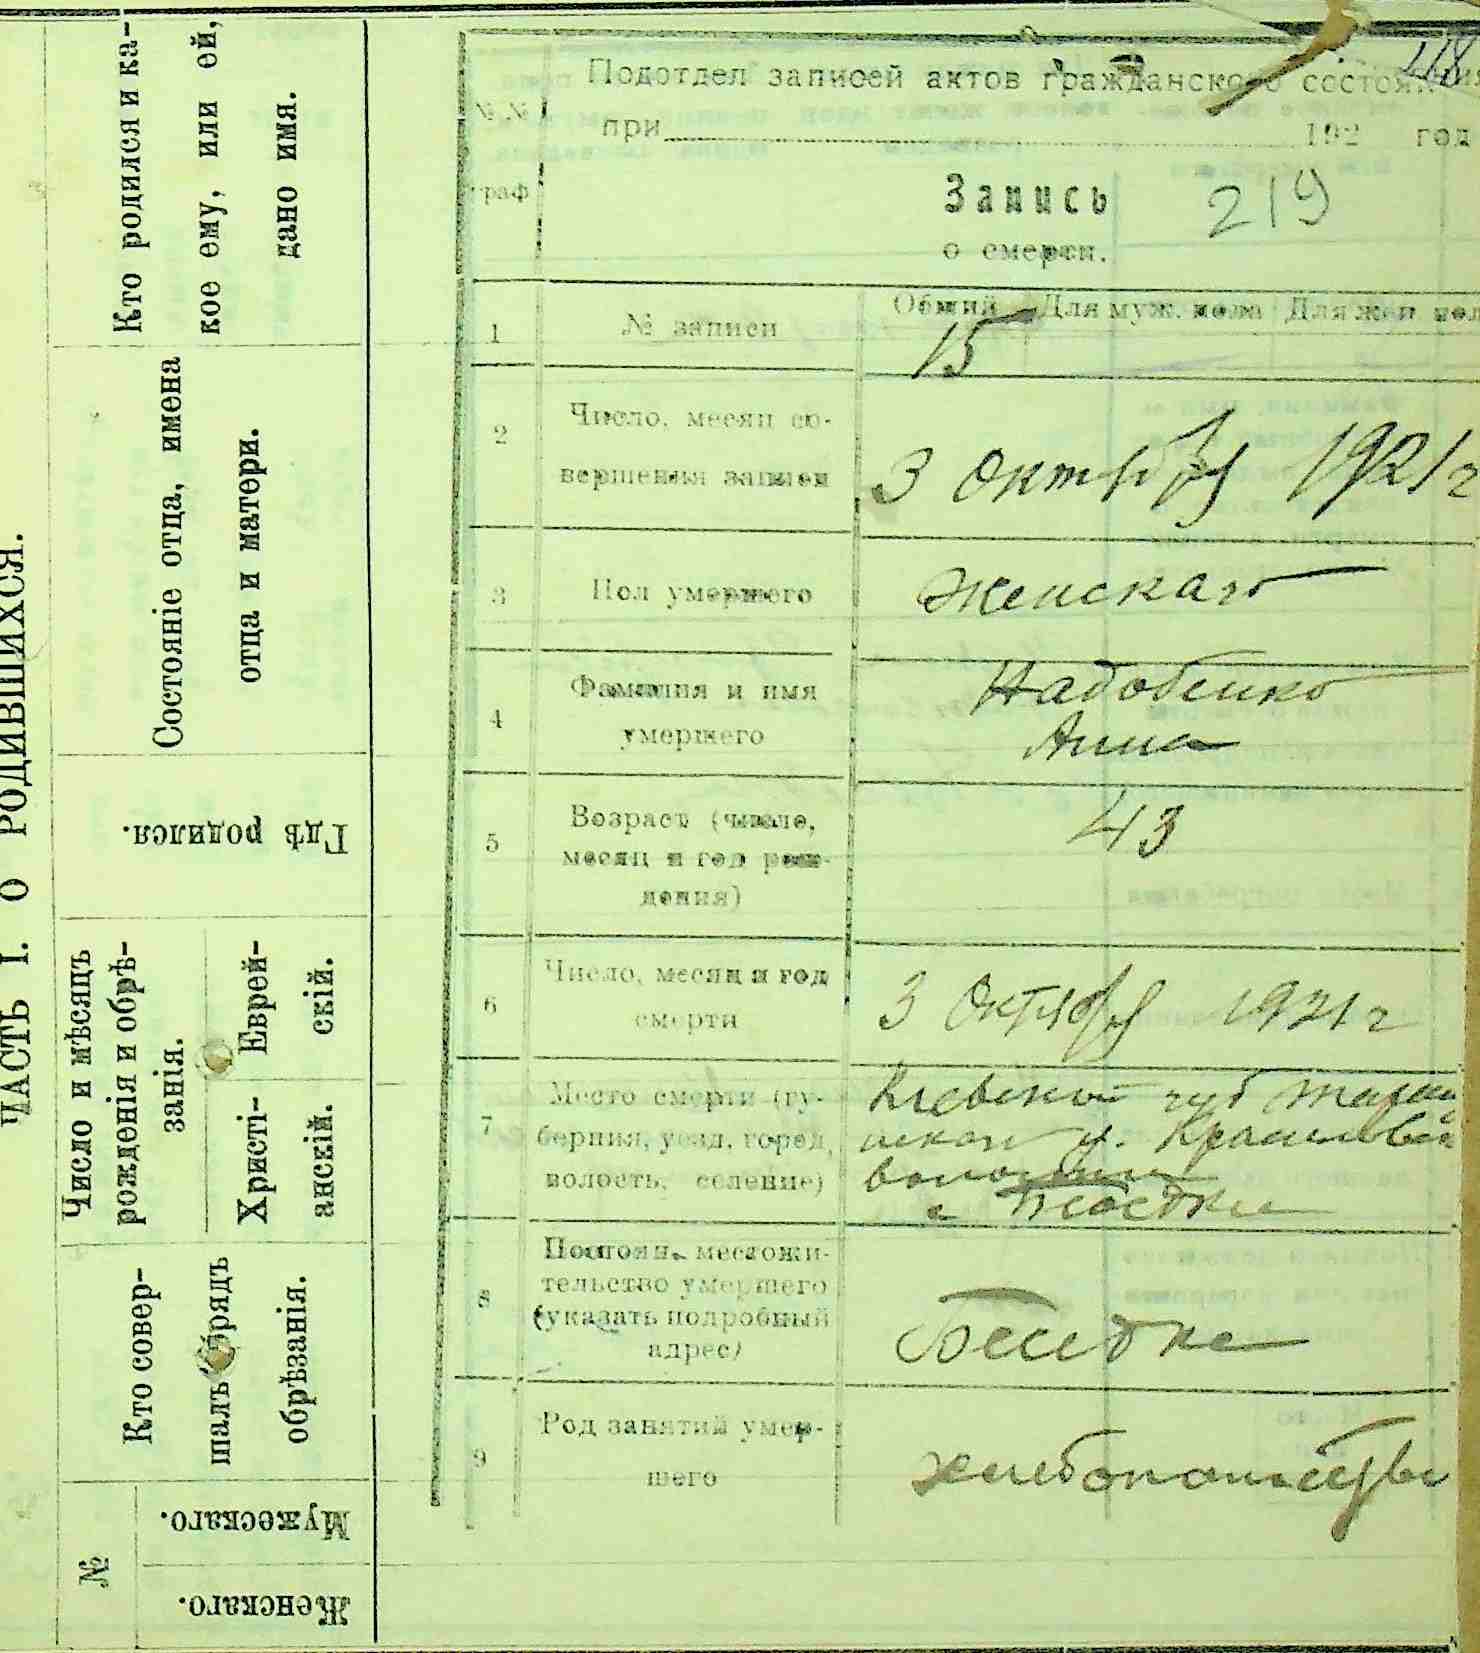 ЧАСТЬ I. О РОДИВШИХСЯ.
Кто родился и ка-
кое ему, или ей,
дано имя.
Состояніе отца, имена
отца и матери.
Гдѣ родился.
Число и мѣсяцъ
рожденія и обрѣ-
занія.
Еврей-
скій.
Христі-
анскій.
Кто совер-
шалъ обрядъ
обрѣзанія.
№
Мужескаго.
Женскаго.
218
№.№
граф
Подотдел записей актов гражданского состояния
при 192 год
Запись 219
о смерти.
1 № записи Общий Для муж. пола Для жен пол
15
2 Число, месяц со-
вершения записи
3 Октября 1921 г
3 Пол умершего Женскаго
4 Фамилия и имя
умершего
Надобенко
Анна
5 Возраст (число,
месяц и год рож-
дения)
43
6 Число, месяц и год
смерти
3 Октября 1921 г
7 Место смерти (гу-
берния, уезд, город,
волость, селение)
Киевской губ
у. Красиловской
волости
8 Постоян. месложи-
тельство умершего
(указать подробный
адрес)
Беседке
9 Род занятий умер-
шего